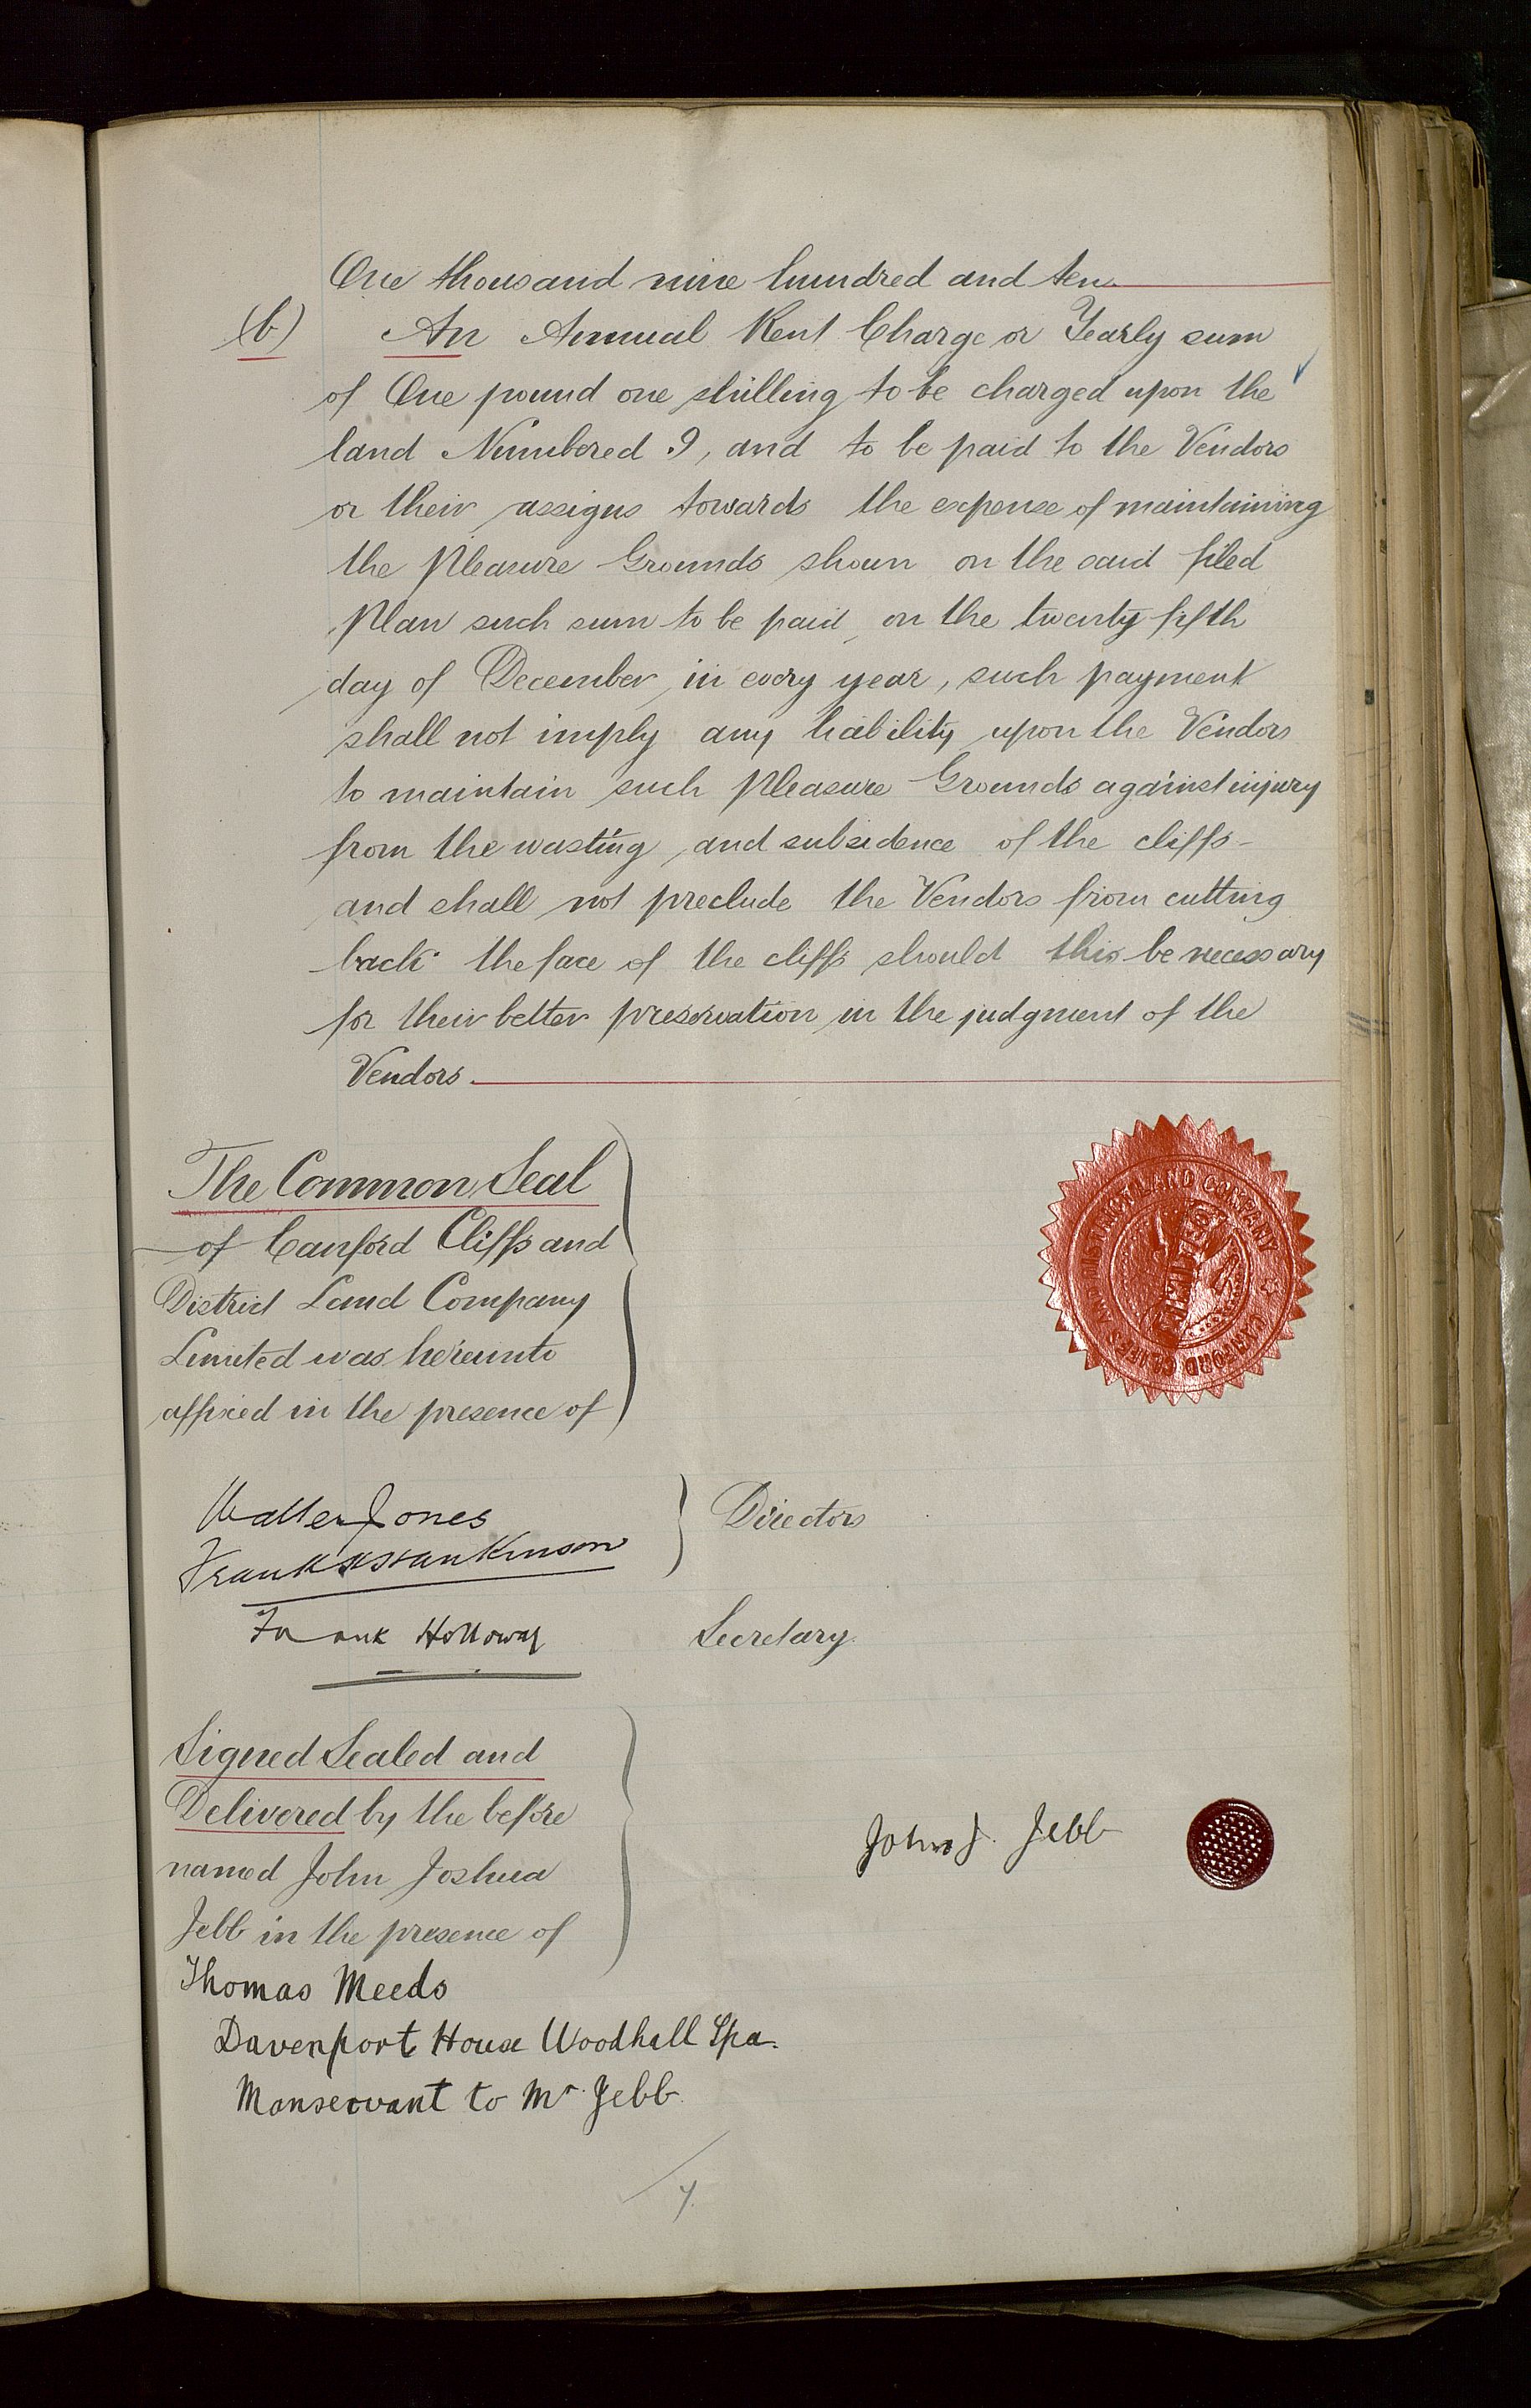 One thousand nine hundred and ten.
(b) An Annual Rent Charge or Yearly sum
of One pound one shilling to be charged upon the
land Numbered 9, and to be paid to the Vendors
or their assigns towards the expense of maintaining
the Pleasure Grounds shown on the said filed
Plan such sum to be paid on the twenty fifth
day of December in every year, such payment
shall not imply any liability upon the Vendors
to maintain such Pleasure Grounds against injury
from the wasting and subsidence of the cliffs-
and shall not preclude the Vendors from cutting
back the face of the cliffs should this be necessary
for their better preservation in the judgment of the
Vendors.
The Common Seal
of Canford Cliffs and
District Land Company
Limited was hereunto
affixed in the presence of
CANFORD CLIFFS AND DISTRICT LAND COMPANY
LIMITED
Walter Jones
Directors
Frank Hankinson
Frank Holloway
Secretary.
Signed Sealed and
Delivered by the before
named John Joshua
Jebb in the presence of
John J. Jebb
Thomas Meeds
Davenport House Woodhall Spa.
Manservant to Mr. Jebb.
7.